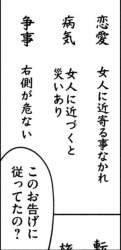 恋愛 女人に近寄る事なかれ
病気 女人に近づくと
災いあり
争事 右側が危ない
このお告げに
従ってたの？